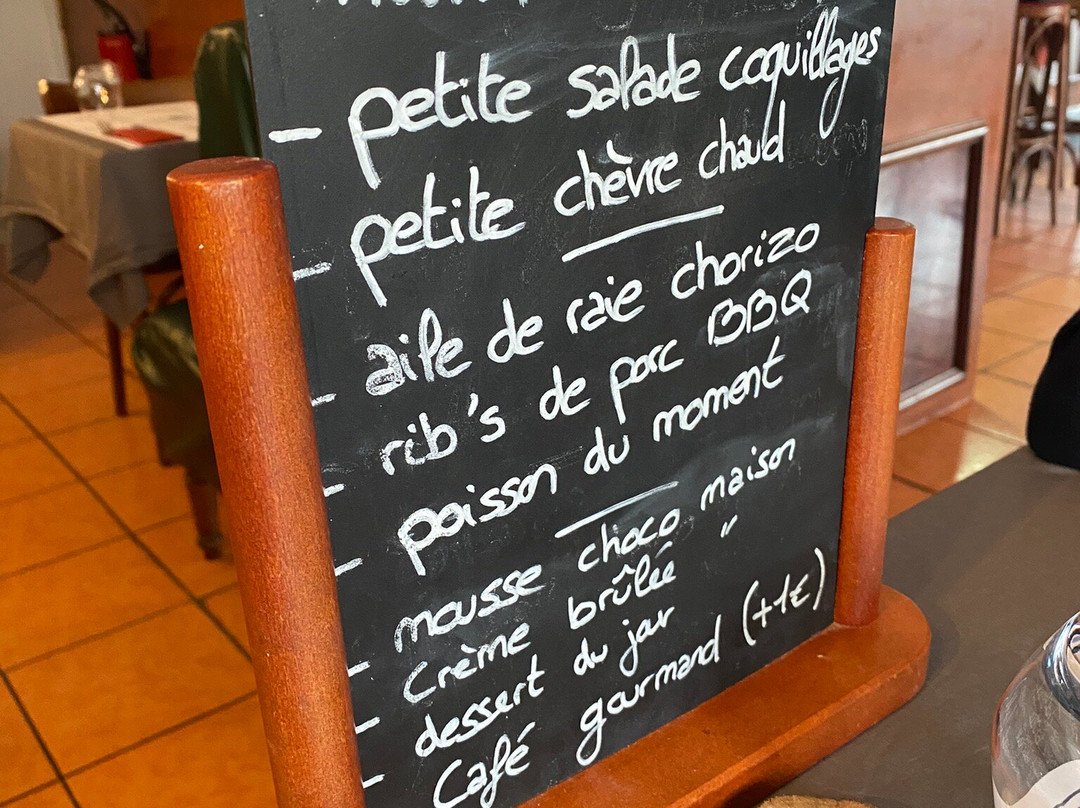 - petite salade coquillages
- petite chèvre chaud
- aile de raie chorizo
- rib's de porc BBQ
- poisson du moment
- mousse choco maison
- crème brûlée "
- dessert du jour
- Café gourmand (+1€)